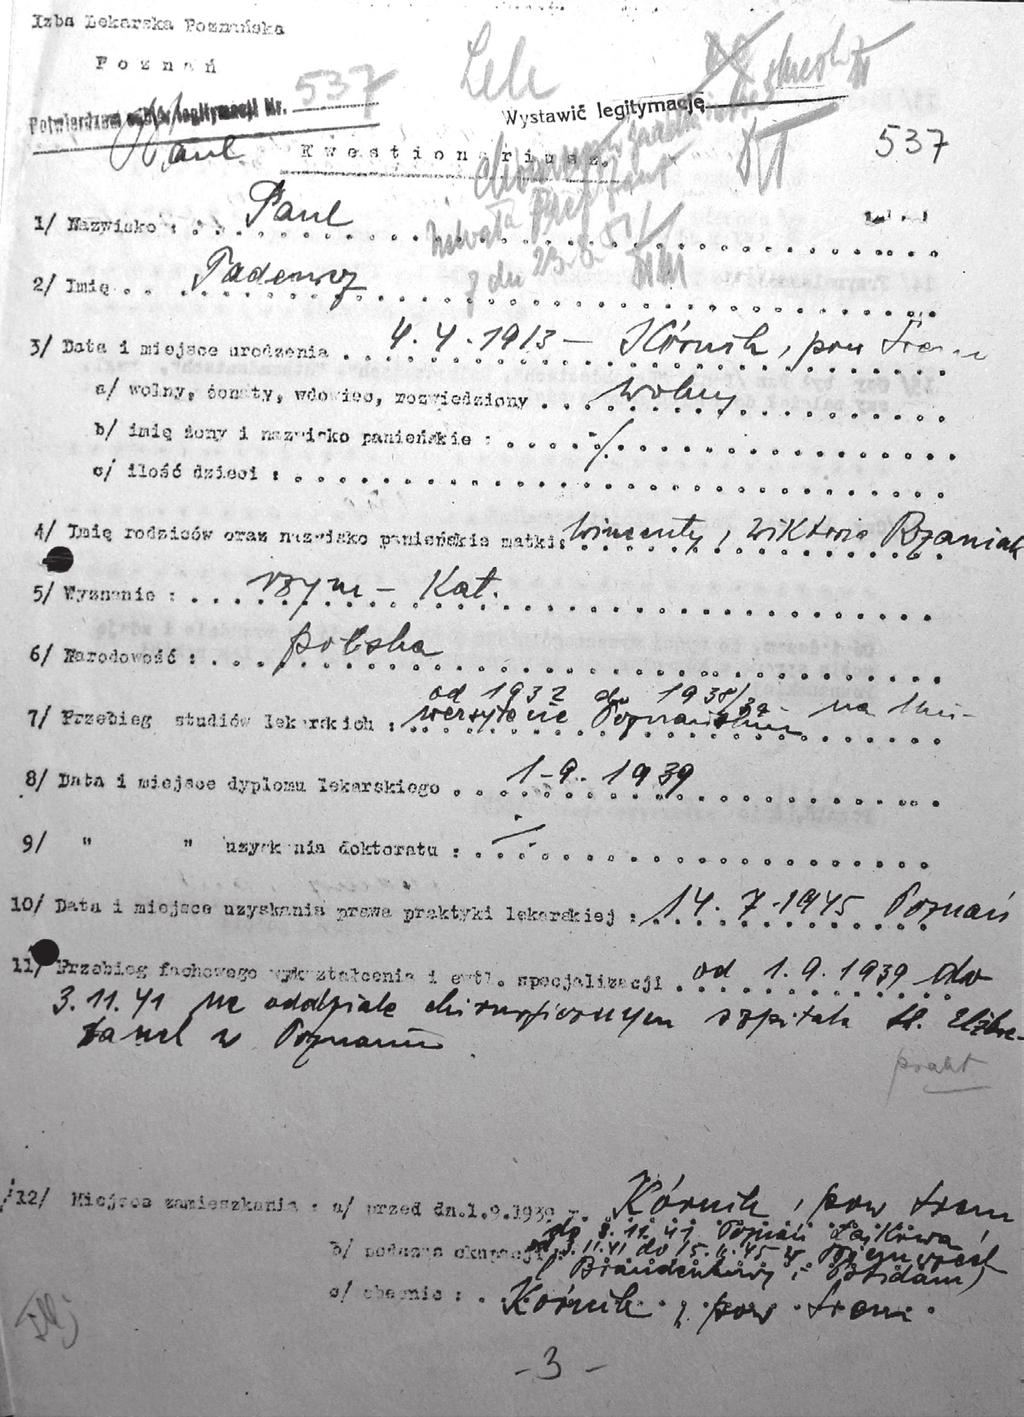 Izba Lekarska Poznańska
Poznań
Potwierdzam odbiór legitymacji Nr. 537
Lek
Wystawić legitymację
537
Paul
Kwestionariusz.
1/ Nazwisko : Paul
uchwała
z dn 23.6.51
2/ Imię Tadeusz
3/ Data i miejsce urodzenia 4.4.1913 – Kórnik, pow Śrem
a/ wolny, żonaty, wdowiec, rozwiedziony wolny
b/ imię żony i nazwisko panieńskie : /.
c/ ilość dzieci :
4/ Imię rodziców oraz nazwisko panieńskie matki: Wincenty, Wiktoria Rzaniak
5/ Wyznanie : rzym – Kat.
6/ Narodowość : polska
od 1932 do 1938/39 na Uni-
7/ Przebieg studiów lekarskich : wersytecie Poznańskim
8/ Data i miejsce dyplomu lekarskiego 1-9.1939
9/ " " uzyskania doktoratu : ./.
10/ Data i miejsce uzyskania prawa praktyki lekarskiej : 14.7.1945 Poznań
11/ Przebieg fachowego wykształcenia i ewtl. specjalizacji od 1.9.1939 do
3.11.41 na oddziale chirurgicznym szpitala św. Elżbie-
tanek w Poznaniu
prakt
12/ Miejsce zamieszkania : a/ przed dn.1.9.1939 r. Kórnik, pow Śrem
do 3.11.41 Poznań Łąkowa
b/ podczas okupacji 3.11.41 do 15.6.45 w
Brandenburg i Potsdam)
c/ obecnie : Kórnik, pow Śrem.
- 3 -